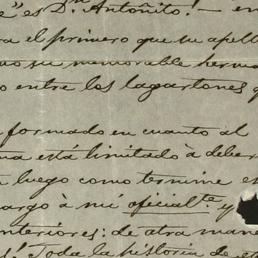 " es Dn. Antoñito! — en
ra el primero que su apell
su memorable herma
o entre los lagartones q
formado en cuanto al
na está limitado à deber
luego como termine e
argo à mi oficialte. y
nteriores: de otra man
s! Toda la historia de